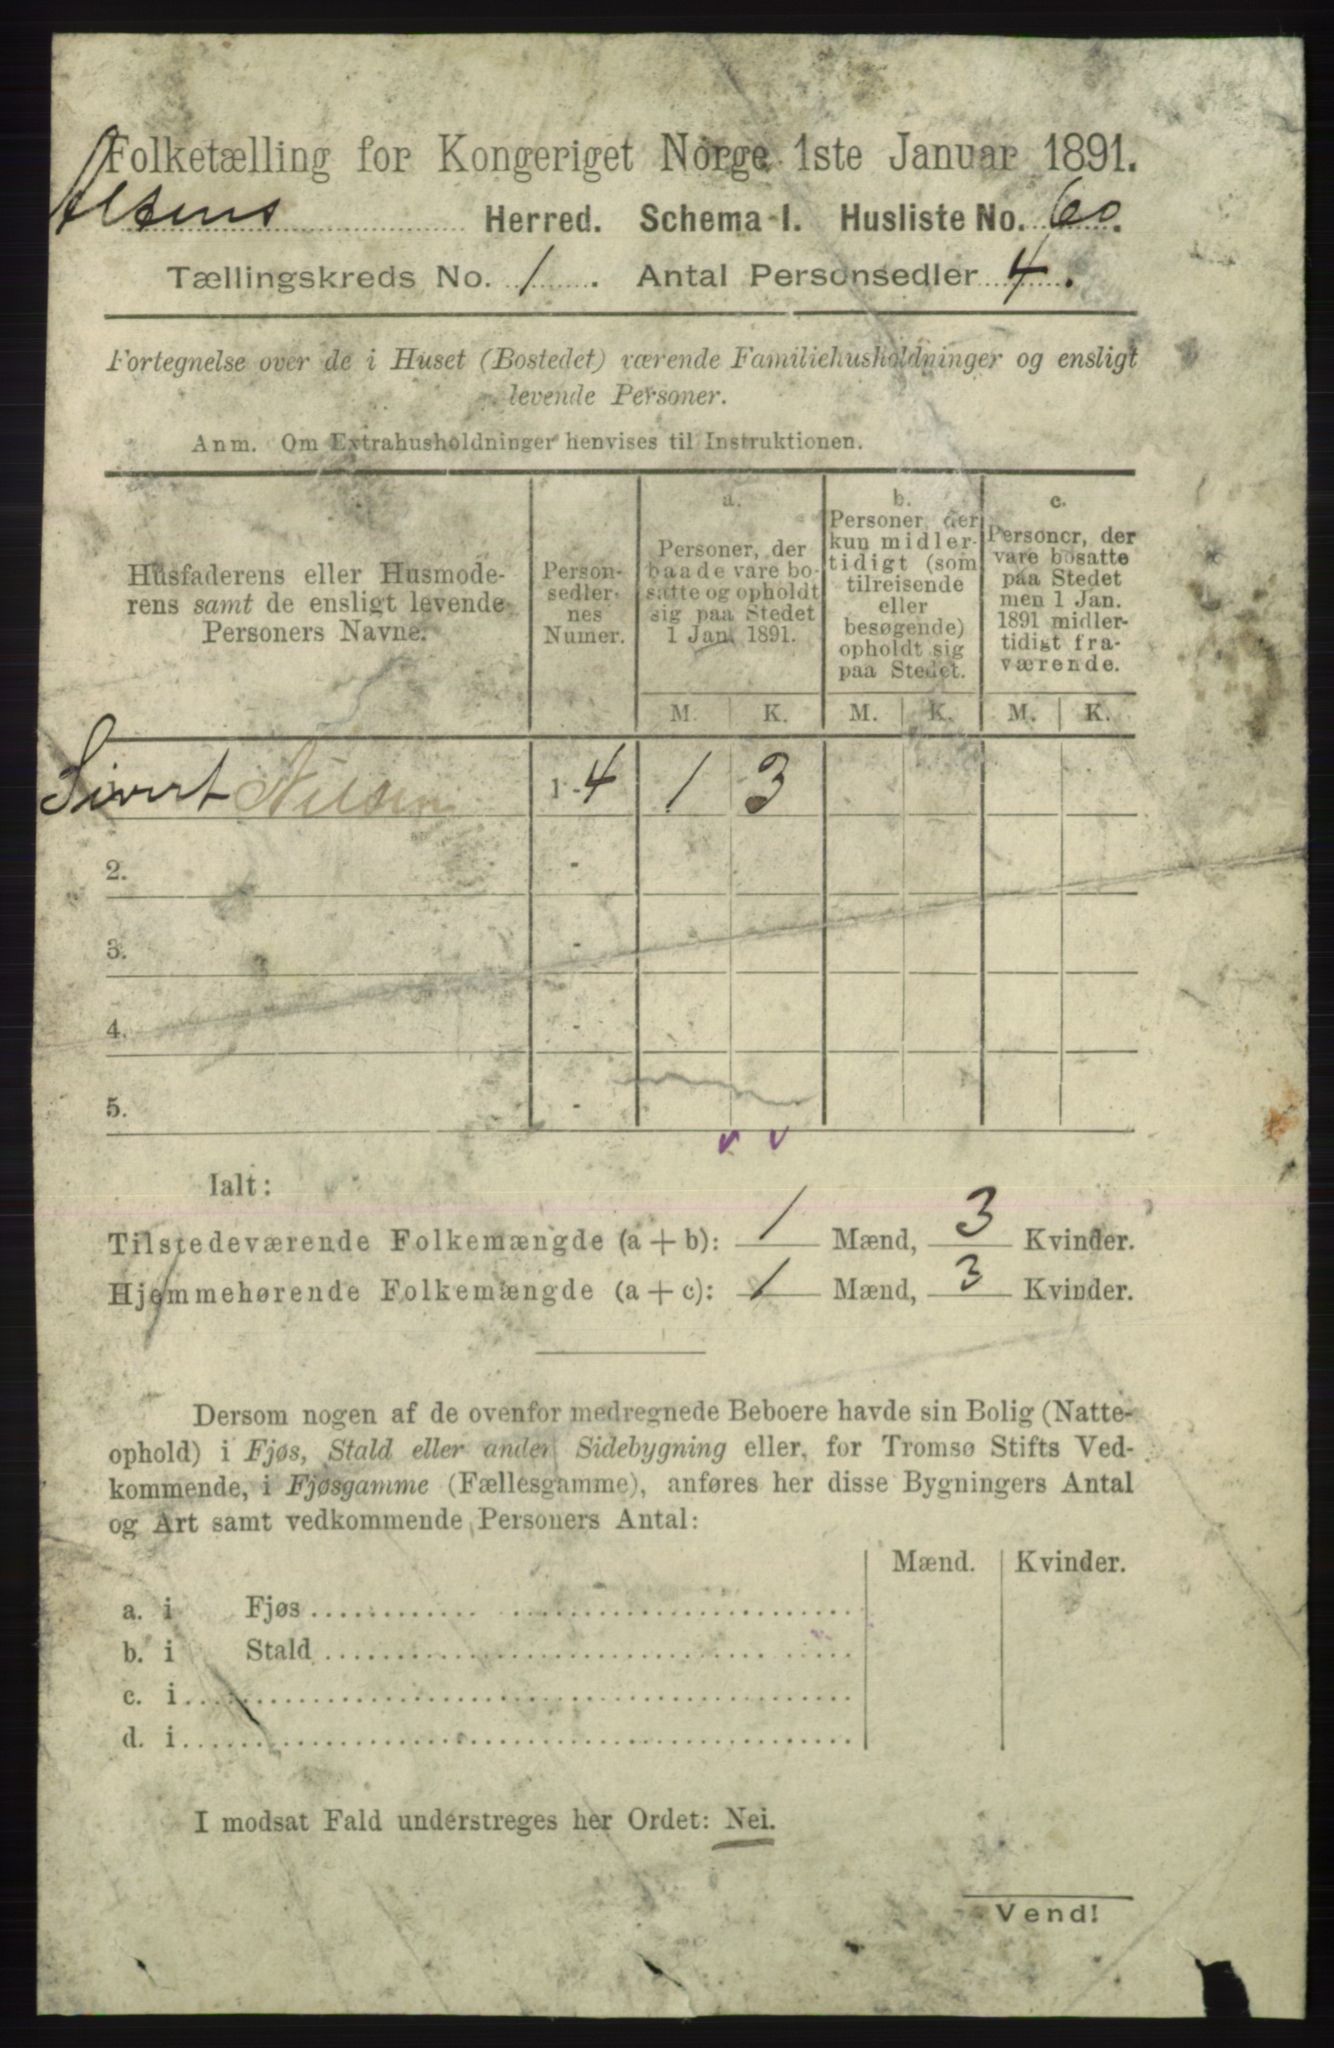 Folketælling for Kongeriget Norge 1ste Januar 1891.
Altens Herred. Schema I. Husliste No. 60.
Tællingskreds No. 1. Antal Personsedler 4.
Fortegnelse over de i Huset (Bostedet) værende Familiehusholdninger og ensligt
levende Personer.
Anm. Om Extrahusholdninger henvises til Instruktionen.
Husfaderens eller Husmode-
rens samt de ensligt levende
Personers Navne.
Person-
sedler-
nes
Numer.
a.
Personer, der
baade vare bo-
satte og opholdt
sig paa Stedet
1 Jan. 1891.
b.
Personer, der
kun midler-
tidigt (som
tilreisende
eller
besøgende)
opholdt sig
paa Stedet.
c.
Personer, der
vare bosatte
paa Stedet
men 1 Jan.
1891 midler-
tidigt fra-
værende.
M. K. M. K. M. K.
Sivert Nilsen 1-4 1 3
2. -
3. -
4. -
5. -
v v
Ialt:
Tilstedeværende Folkemængde (a + b): 1 Mænd, 3 Kvinder.
Hjemmehørende Folkemængde (a + c): 1 Mænd, 3 Kvinder.
Dersom nogen af de ovenfor medregnede Beboere havde sin Bolig (Natte-
ophold) i Fjøs, Stald eller anden Sidebygning eller, for Tromsø Stifts Ved-
kommende, i Fjøsgamme (Fællesgamme), anføres her disse Bygningers Antal
og Art samt vedkommende Personers Antal:
Mænd. Kvinder.
a. i Fjøs
b. i Stald
c. i
d. i
I modsat Fald understreges her Ordet: Nei.
Vend!